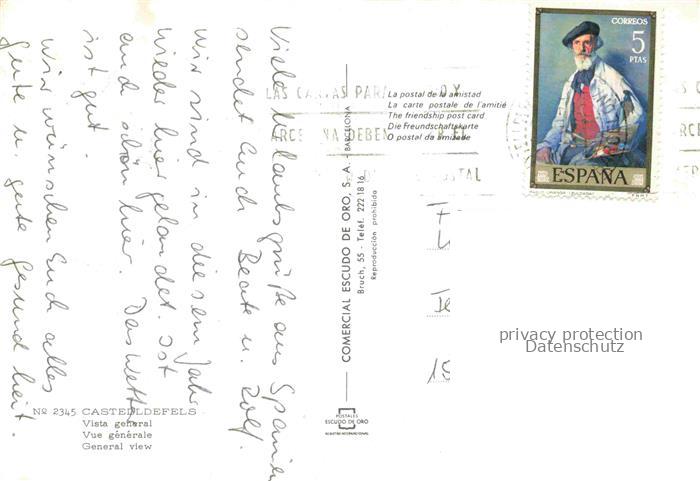 Viele Urlaubsgrüße aus Spanien
sendet Euch Beate u. Rolf.
Wir sind in diesem Jahr
wieder hier gelandet. Ist
auch schön hier. Das Wetter
ist gut.
Wir wünschen Euch alles
gute u. gute gesundheit.
Nº 2345 CASTELLDEFELS
Vista general
Vue générale
General view
COMERCIAL ESCUDO DE ORO, S. A. - BARCELONA
Bruch, 55 - Teléf. 222 18 16
Reproducción prohibida
POSTALES
ESCUDO DE ORO
La postal de la amistad
La carte postale de l'amitié
The friendship post card
Die Freundschaftskarte
O postal da amizade
LAS CARTAS PARA
DEBEN
POSTAL
CORREOS
5
PTAS
ESPAÑA
15
privacy protection
Datenschutz